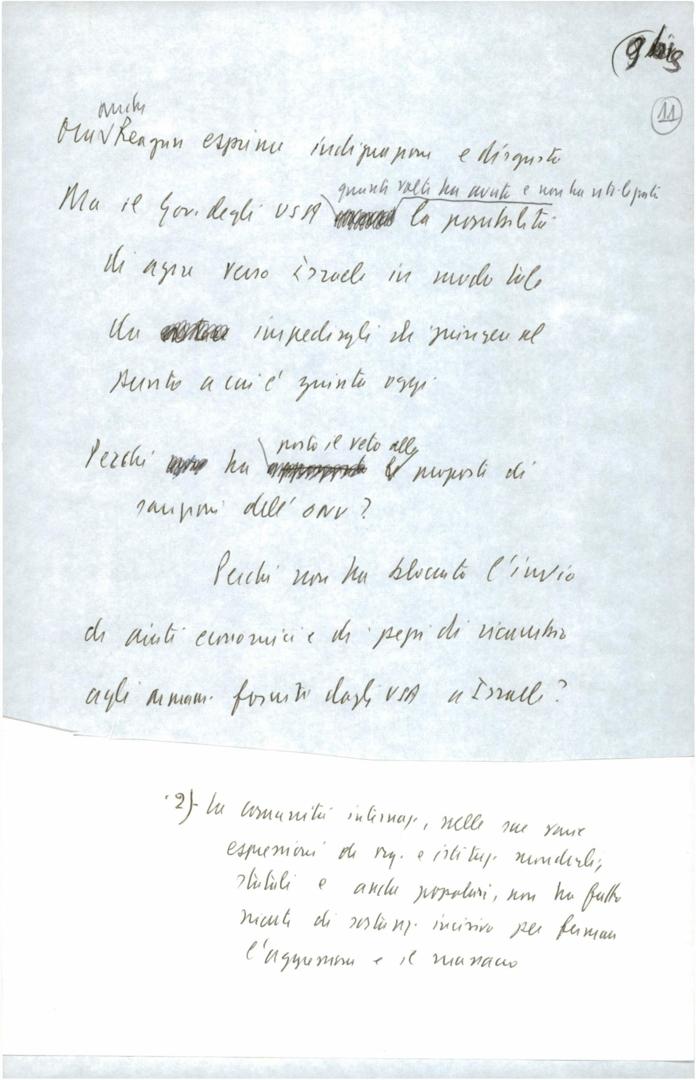 9 bis
11
anche
Ora Reagan esprime indignazione e disgusto
quante volte ha avuto e non ha utilizzato
Ma il Gov. degli USA la possibilità
di agire verso Israele in modo tale
da impedirgli di giungere al
punto a cui è giunto oggi.
posto il veto alle
Perché ha proposte di
sanzioni dell'ONU?
Perché non ha bloccato l'invio
di aiuti economici e di pezzi di ricambio
agli armam. forniti dagli USA a Israele?
2) La comunità internaz., nelle sue varie
espressioni di org. e istituz. mondiali,
statali e anche popolari, non ha fatto
niente di sostanz. incisivo per fermare
l'aggressione e il massacro